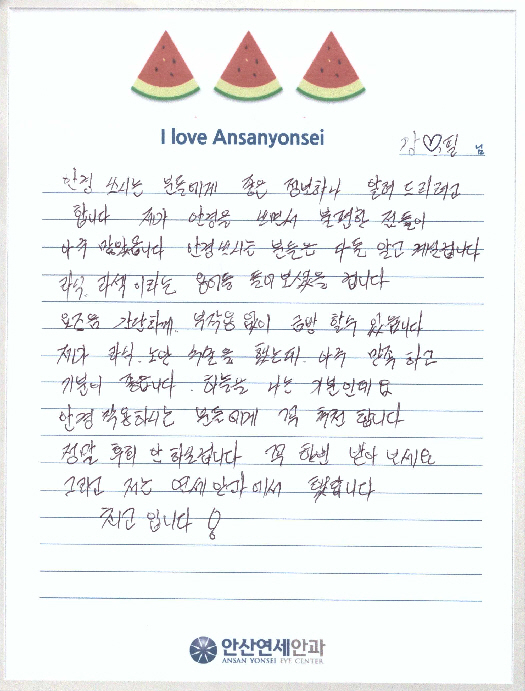 I love Ansanyonsei
장♡필 님
안경 쓰시는 분들에게 좋은 정보하나 알려 드리려고
합니다 제가 안경을 쓰면서 불편한 점들이
아주 많았읍니다 안경쓰시는 분들은 다들 알고 계실겁니다
라식. 라섹이라는 용어를 들어보셨을 겁니다
요즈음 간단하게. 부작용없이 금방 할수 있읍니다
제가 라식. 노안 수술을 했는데. 아주 만족하고
기분이 좋습니다. 하늘을 나는 기분인데요
안경 착용하시는 분들에게 꼭 추천 합니다
정말 후회 안 하실겁니다 꼭 한번 받아 보세요
그리고 저는 연세안과에서 했습니다
최고 입니다
안산연세안과
ANSAN YONSEI EYE CENTER